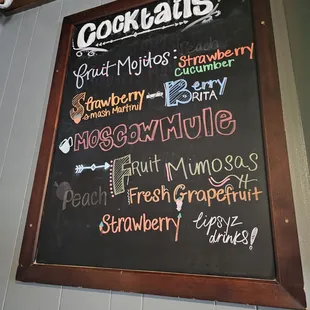 Cocktails
Fruit Mojitos: Peach
Strawberry
Cucumber
Strawberry Berry
Smash Martini Rita
Moscow Mule
Fruit Mimosas
Peach Fresh Grapefruit
Strawberry lipsyz
drinks!